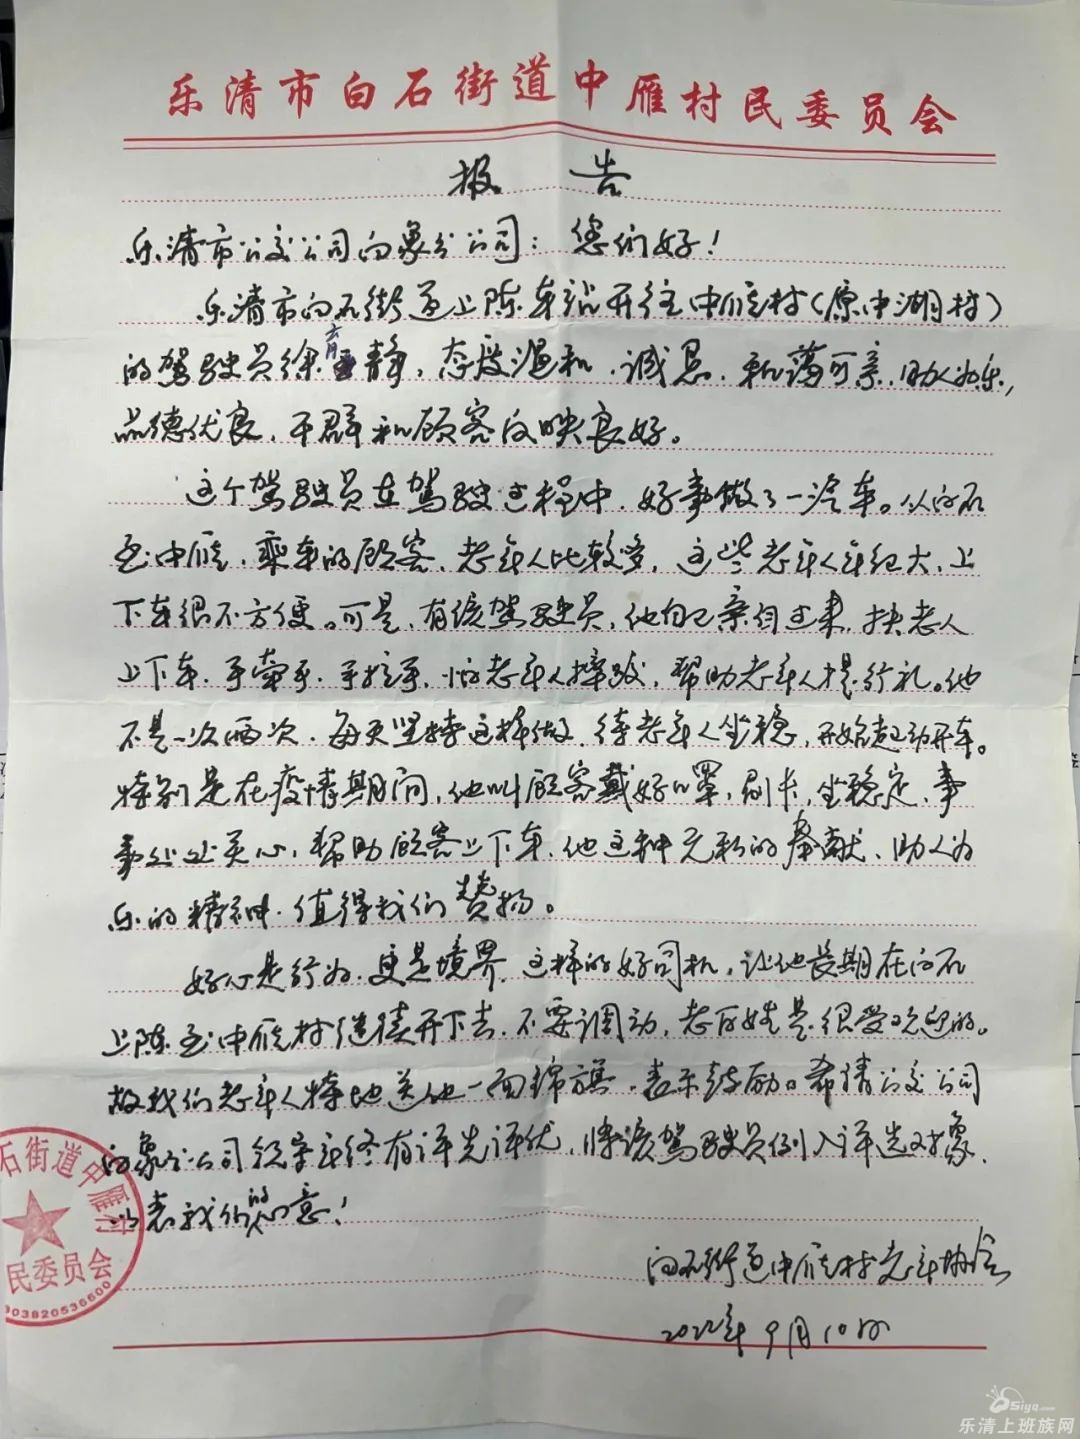 乐清市白石街道中雁村民委员会
报 告
乐清市公交公司白象分公司：您们好！
乐清市白石街道上陈车站开往中雁村（原中湖村）
的驾驶员徐育静，态度温和、诚恳、和蔼可亲、助人为乐，
品德优良，干群和顾客反映良好。
这个驾驶员在驾驶过程中，好事做了一汽车。从白石
至中雁，乘车的顾客，老年人比较多，这些老年人年纪大，上
下车很不方便。可是，有该驾驶员，他自己亲自过来，扶老人
上下车，手牵手，手拉手，怕老年人摔跤，帮助老年人提行礼。他
不是一次两次，每天坚持这样做，待老年人坐稳，开始起动开车。
特别是在疫情期间，他叫顾客戴好口罩，刷卡，坐稳定，事
事处处关心，帮助顾客上下车，他这种无私的奉献、助人为
乐的精神，值得我们赞扬。
好心是行为，更是境界，这样的好司机，让他长期在白石
上陈至中雁村继续开下去，不要调动，老百姓是很受欢迎的。
故我们老年人特地送他一面锦旗，表示鼓励。希请公交公司
白象分公司领导年终有评先评优，将该驾驶员例入评选对象，
以表我们的心意！
白石街道中雁村老年协会
2022年9月10日
石街道中雁村
民委员会
903820536600
乐清上班族网